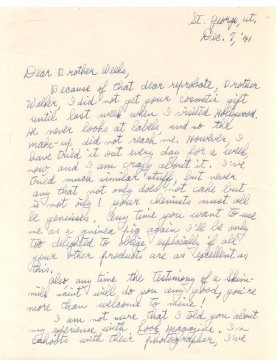 St. George, Ut.
Dec. 7, '41
Dear Brother Weeks,
Because of that dear reprobate, Brother
Walker, I did not get your cosmetic gift
until last week when I visited Hollywood.
He never looks at labels, and so the
make-up did not reach me. However I
have tried it out every day for a week
now and I am crazy about it. I've
tried much similar stuff, but never
any that not only does not cake but
is not oily! Your chemists must all
be geniuses. Any time you want to use
me as a guinea pig again I'll be only
too delighted to oblige especially if all
your other products are as excellent as
this.
Also any time the testimony of a skim-
milk saint will do you any good, you're
more than welcome to mine!
I am not sure that I told you about
my experience with Look magazine. I'm
cahoots with their photographer, I've